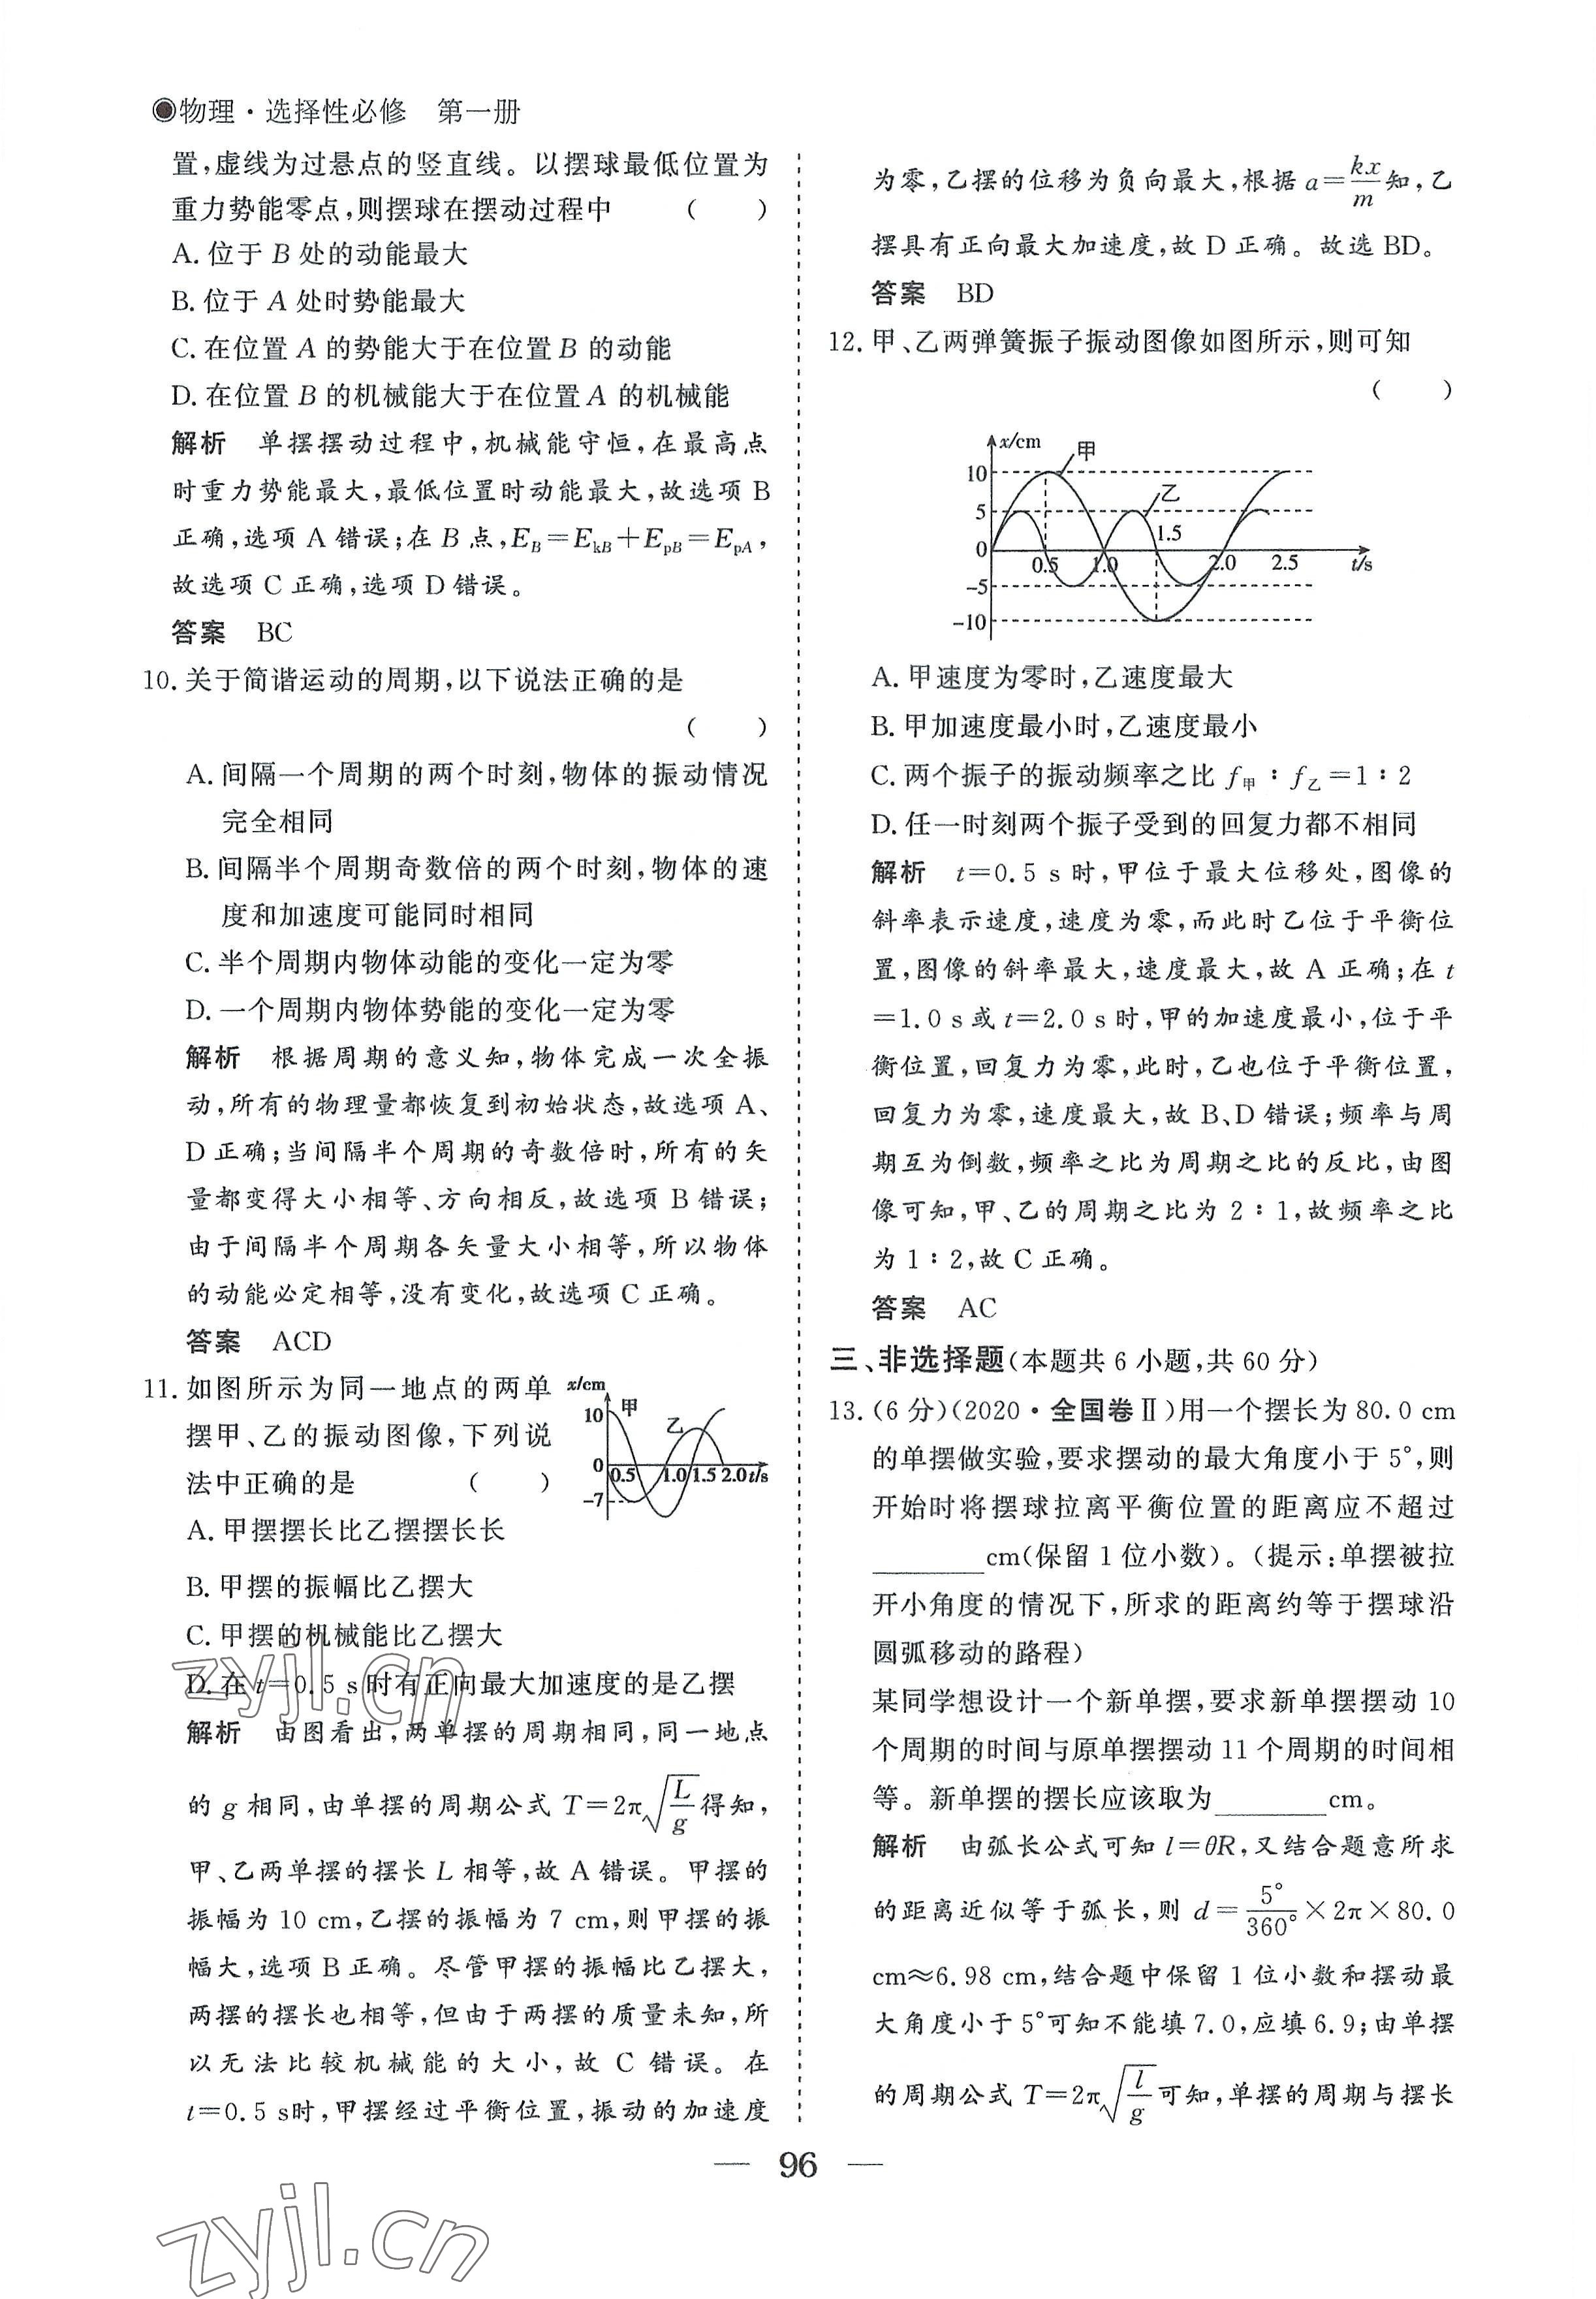 ◉物理·选择性必修 第一册
置,虚线为过悬点的竖直线。以摆球最低位置为
重力势能零点,则摆球在摆动过程中 ( )
A. 位于 B 处的动能最大
B. 位于 A 处时势能最大
C. 在位置 A 的势能大于在位置 B 的动能
D. 在位置 B 的机械能大于在位置 A 的机械能
解析 单摆摆动过程中,机械能守恒,在最高点
时重力势能最大,最低位置时动能最大,故选项 B
正确,选项 A 错误;在 B 点,E_B=E_kB+E_pB=E_pA,
故选项 C 正确,选项 D 错误。
答案 BC
10. 关于简谐运动的周期,以下说法正确的是
( )
A. 间隔一个周期的两个时刻,物体的振动情况
完全相同
B. 间隔半个周期奇数倍的两个时刻,物体的速
度和加速度可能同时相同
C. 半个周期内物体动能的变化一定为零
D. 一个周期内物体势能的变化一定为零
解析 根据周期的意义知,物体完成一次全振
动,所有的物理量都恢复到初始状态,故选项 A、
D 正确;当间隔半个周期的奇数倍时,所有的矢
量都变得大小相等、方向相反,故选项 B 错误;
由于间隔半个周期各矢量大小相等,所以物体
的动能必定相等,没有变化,故选项 C 正确。
答案 ACD
11. 如图所示为同一地点的两单
摆甲、乙的振动图像,下列说
法中正确的是 ( )
x/cm
10
甲
乙
0
0.5 1.0 1.5 2.0 t/s
-7
A. 甲摆摆长比乙摆摆长长
B. 甲摆的振幅比乙摆大
C. 甲摆的机械能比乙摆大
D. 在 t=0.5 s 时有正向最大加速度的是乙摆
解析 由图看出,两单摆的周期相同,同一地点
的 g 相同,由单摆的周期公式 T=2π√(L/g) 得知,
甲、乙两单摆的摆长 L 相等,故 A 错误。甲摆的
振幅为 10 cm,乙摆的振幅为 7 cm,则甲摆的振
幅大,选项 B 正确。尽管甲摆的振幅比乙摆大,
两摆的摆长也相等,但由于两摆的质量未知,所
以无法比较机械能的大小,故 C 错误。在
t=0.5 s时,甲摆经过平衡位置,振动的加速度
为零,乙摆的位移为负向最大,根据 a=kx/m 知,乙
摆具有正向最大加速度,故 D 正确。故选 BD。
答案 BD
12. 甲、乙两弹簧振子振动图像如图所示,则可知
( )
x/cm
甲
10
乙
5
1.5
0
0.5 1.0 2.0 2.5 t/s
-5
-10
A. 甲速度为零时,乙速度最大
B. 甲加速度最小时,乙速度最小
C. 两个振子的振动频率之比 f甲∶f乙=1∶2
D. 任一时刻两个振子受到的回复力都不相同
解析 t=0.5 s 时,甲位于最大位移处,图像的
斜率表示速度,速度为零,而此时乙位于平衡位
置,图像的斜率最大,速度最大,故 A 正确;在 t
=1.0 s 或 t=2.0 s 时,甲的加速度最小,位于平
衡位置,回复力为零,此时,乙也位于平衡位置,
回复力为零,速度最大,故 B、D 错误;频率与周
期互为倒数,频率之比为周期之比的反比,由图
像可知,甲、乙的周期之比为 2∶1,故频率之比
为 1∶2,故 C 正确。
答案 AC
三、非选择题(本题共 6 小题,共 60 分)
13. (6 分)(2020·全国卷Ⅱ)用一个摆长为 80.0 cm
的单摆做实验,要求摆动的最大角度小于 5°,则
开始时将摆球拉离平衡位置的距离应不超过
________cm(保留 1 位小数)。(提示:单摆被拉
开小角度的情况下,所求的距离约等于摆球沿
圆弧移动的路程)
某同学想设计一个新单摆,要求新单摆摆动 10
个周期的时间与原单摆摆动 11 个周期的时间相
等。新单摆的摆长应该取为________cm。
解析 由弧长公式可知 l=θR,又结合题意所求
的距离近似等于弧长,则 d=5°/360°×2π×80.0
cm≈6.98 cm,结合题中保留 1 位小数和摆动最
大角度小于 5°可知不能填 7.0,应填 6.9;由单摆
的周期公式 T=2π√(l/g) 可知,单摆的周期与摆长
— 96 —
zyjl.cn
zyjl.cn